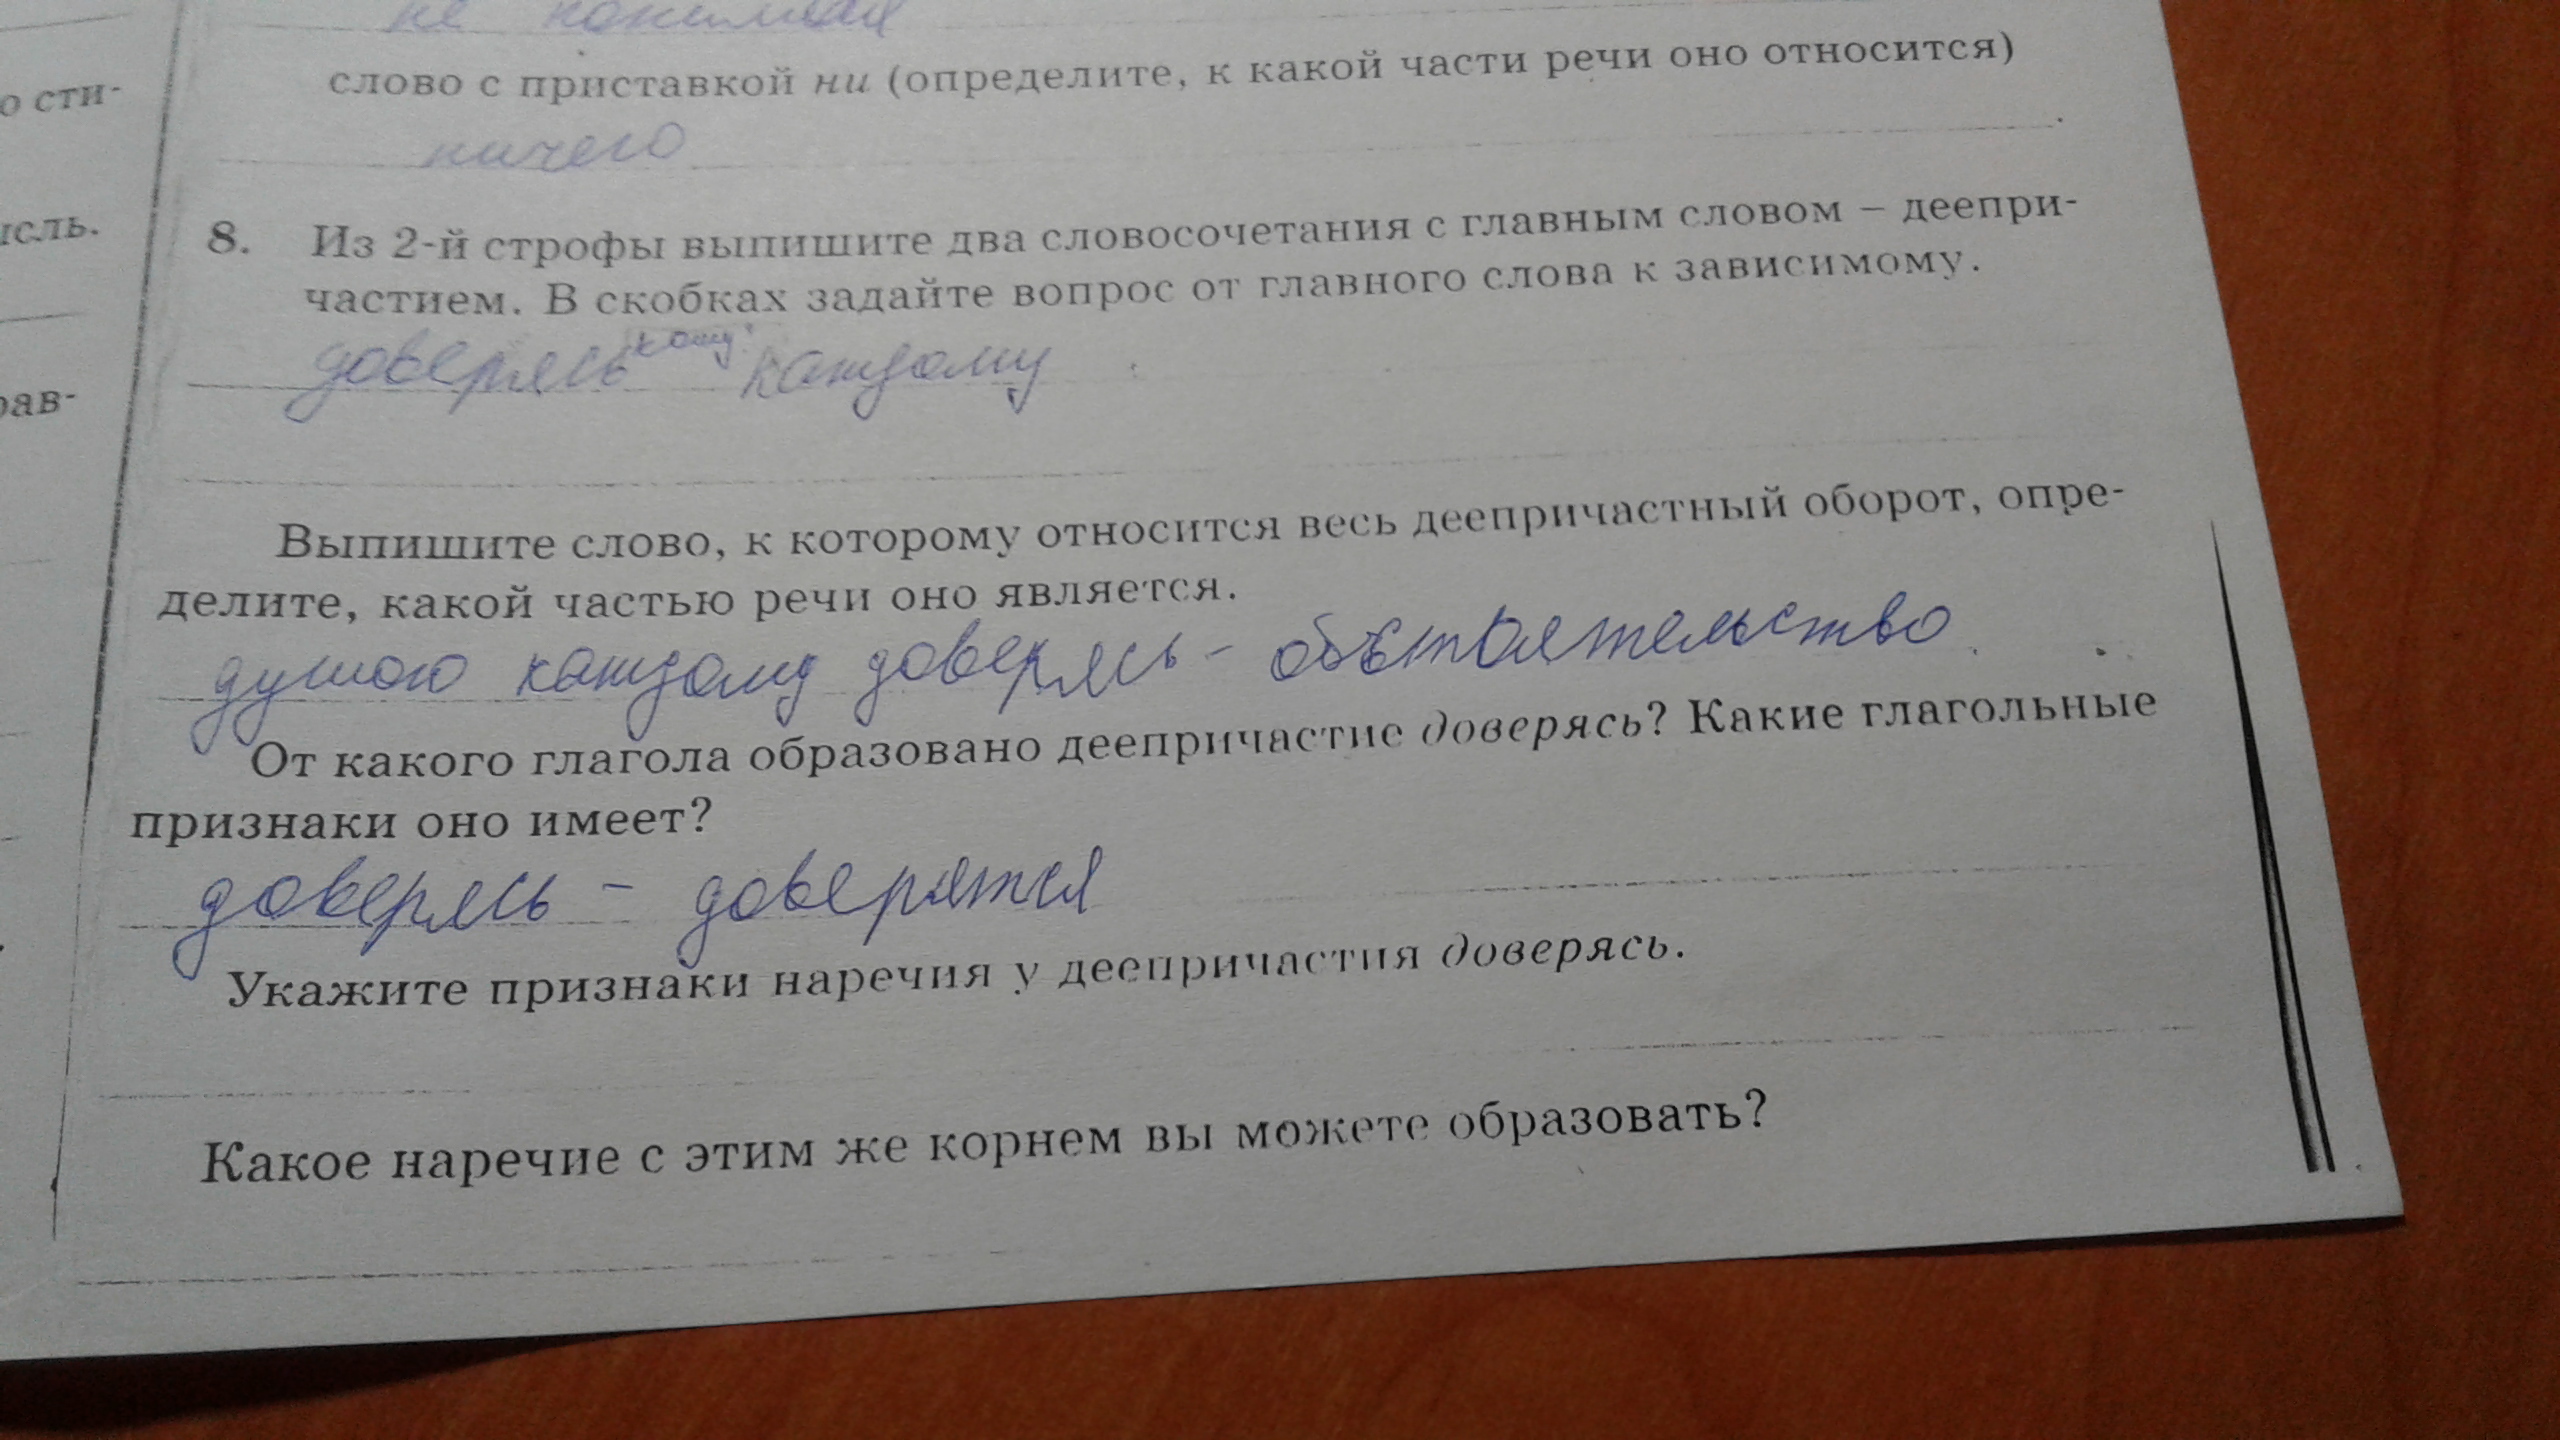 не понимая
о сти-
слово с приставкой ни (определите, к какой части речи оно относится)
ничего
ысль.
8. Из 2-й строфы выпишите два словосочетания с главным словом – деепри-
частием. В скобках задайте вопрос от главного слова к зависимому.
доверясь кому? каждому
рав-
Выпишите слово, к которому относится весь деепричастный оборот, опре-
делите, какой частью речи оно является.
душою каждому доверясь - обстоятельство.
От какого глагола образовано деепричастие доверясь? Какие глагольные
признаки оно имеет?
доверясь - доверятся
Укажите признаки наречия у деепричастия доверясь.
Какое наречие с этим же корнем вы можете образовать?